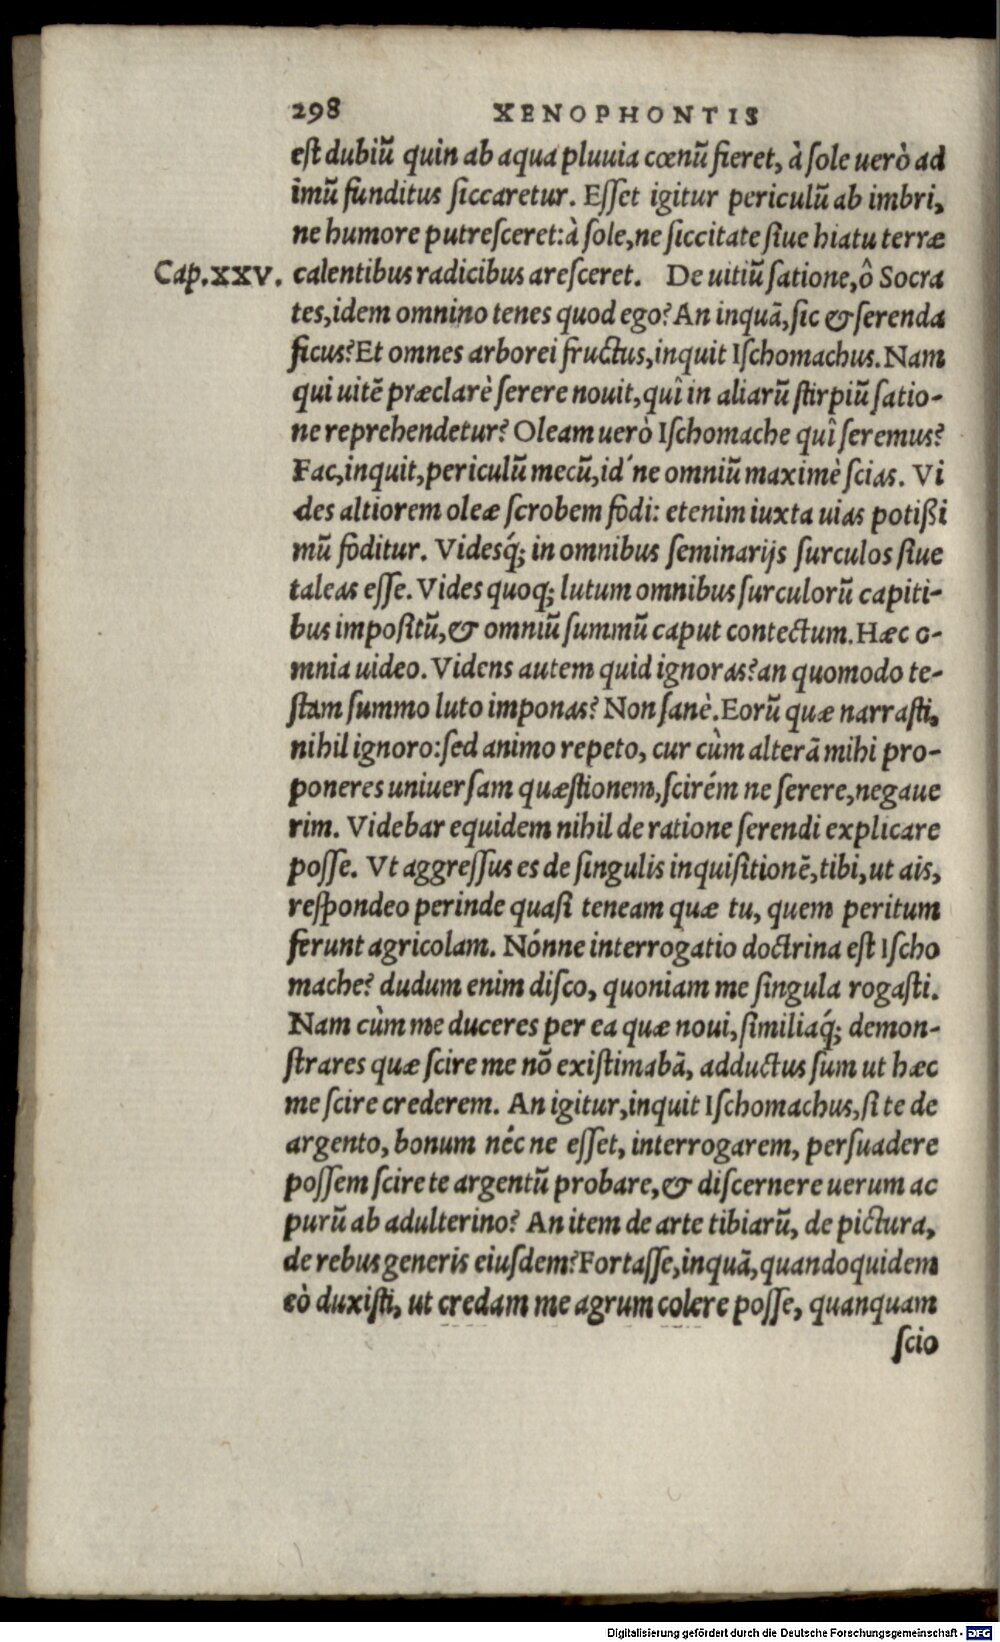 298 XENOPHONTIS
est dubiũ quin ab aqua pluuia cœnũ fieret, à sole uerò ad
imũ funditus siccaretur. Esset igitur periculũ ab imbri,
ne humore putresceret: à sole, ne siccitate siue hiatu terræ
Cap. XXV. calentibus radicibus aresceret. De uitiũ satione, ô Socra
tes, idem omnino tenes quod ego? An inquã, sic & serenda
ficus? Et omnes arborei fructus, inquit Ischomachus. Nam
qui uitẽ præclarè serere nouit, quî in aliarũ stirpiũ satio-
ne reprehendetur? Oleam uerò Ischomache quî seremus?
Fac, inquit, periculũ mecũ, id´ne omniũ maximè scias. Vi
des altiorem oleæ scrobem fodi: etenim iuxta uias potißi
mũ foditur. Videsq́; in omnibus seminarijs surculos siue
taleas esse. Vides quoq; lutum omnibus surculorũ capiti-
bus impositũ, & omniũ summũ caput contectum. Hæc o-
mnia uideo. Videns autem quid ignoras? an quomodo te-
stam summo luto imponas? Non sanè. Eorũ quæ narrasti,
nihil ignoro: sed animo repeto, cur cùm alterã mihi pro-
poneres uniuersam quæstionem, scirém ne serere, negaue
rim. Videbar equidem nihil de ratione serendi explicare
posse. Vt aggressus es de singulis inquisitionẽ, tibi, ut ais,
respondeo perinde quasi teneam quæ tu, quem peritum
ferunt agricolam. Nónne interrogatio doctrina est Ischo
mache? dudum enim disco, quoniam me singula rogasti.
Nam cùm me duceres per ea quæ noui, similiaq́; demon-
strares quæ scire me nõ existimabã, adductus sum ut hæc
me scire crederem. An igitur, inquit Ischomachus, si te de
argento, bonum néc ne esset, interrogarem, persuadere
possem scire te argentũ probare, & discernere uerum ac
purũ ab adulterino? An item de arte tibiarũ, de pictura,
de rebus generis eiusdem? Fortasse, inquã, quandoquidem
eò duxisti, ut credam me agrum colere posse, quanquam
scio
Digitalisierung gefördert durch die Deutsche Forschungsgemeinschaft - DFG